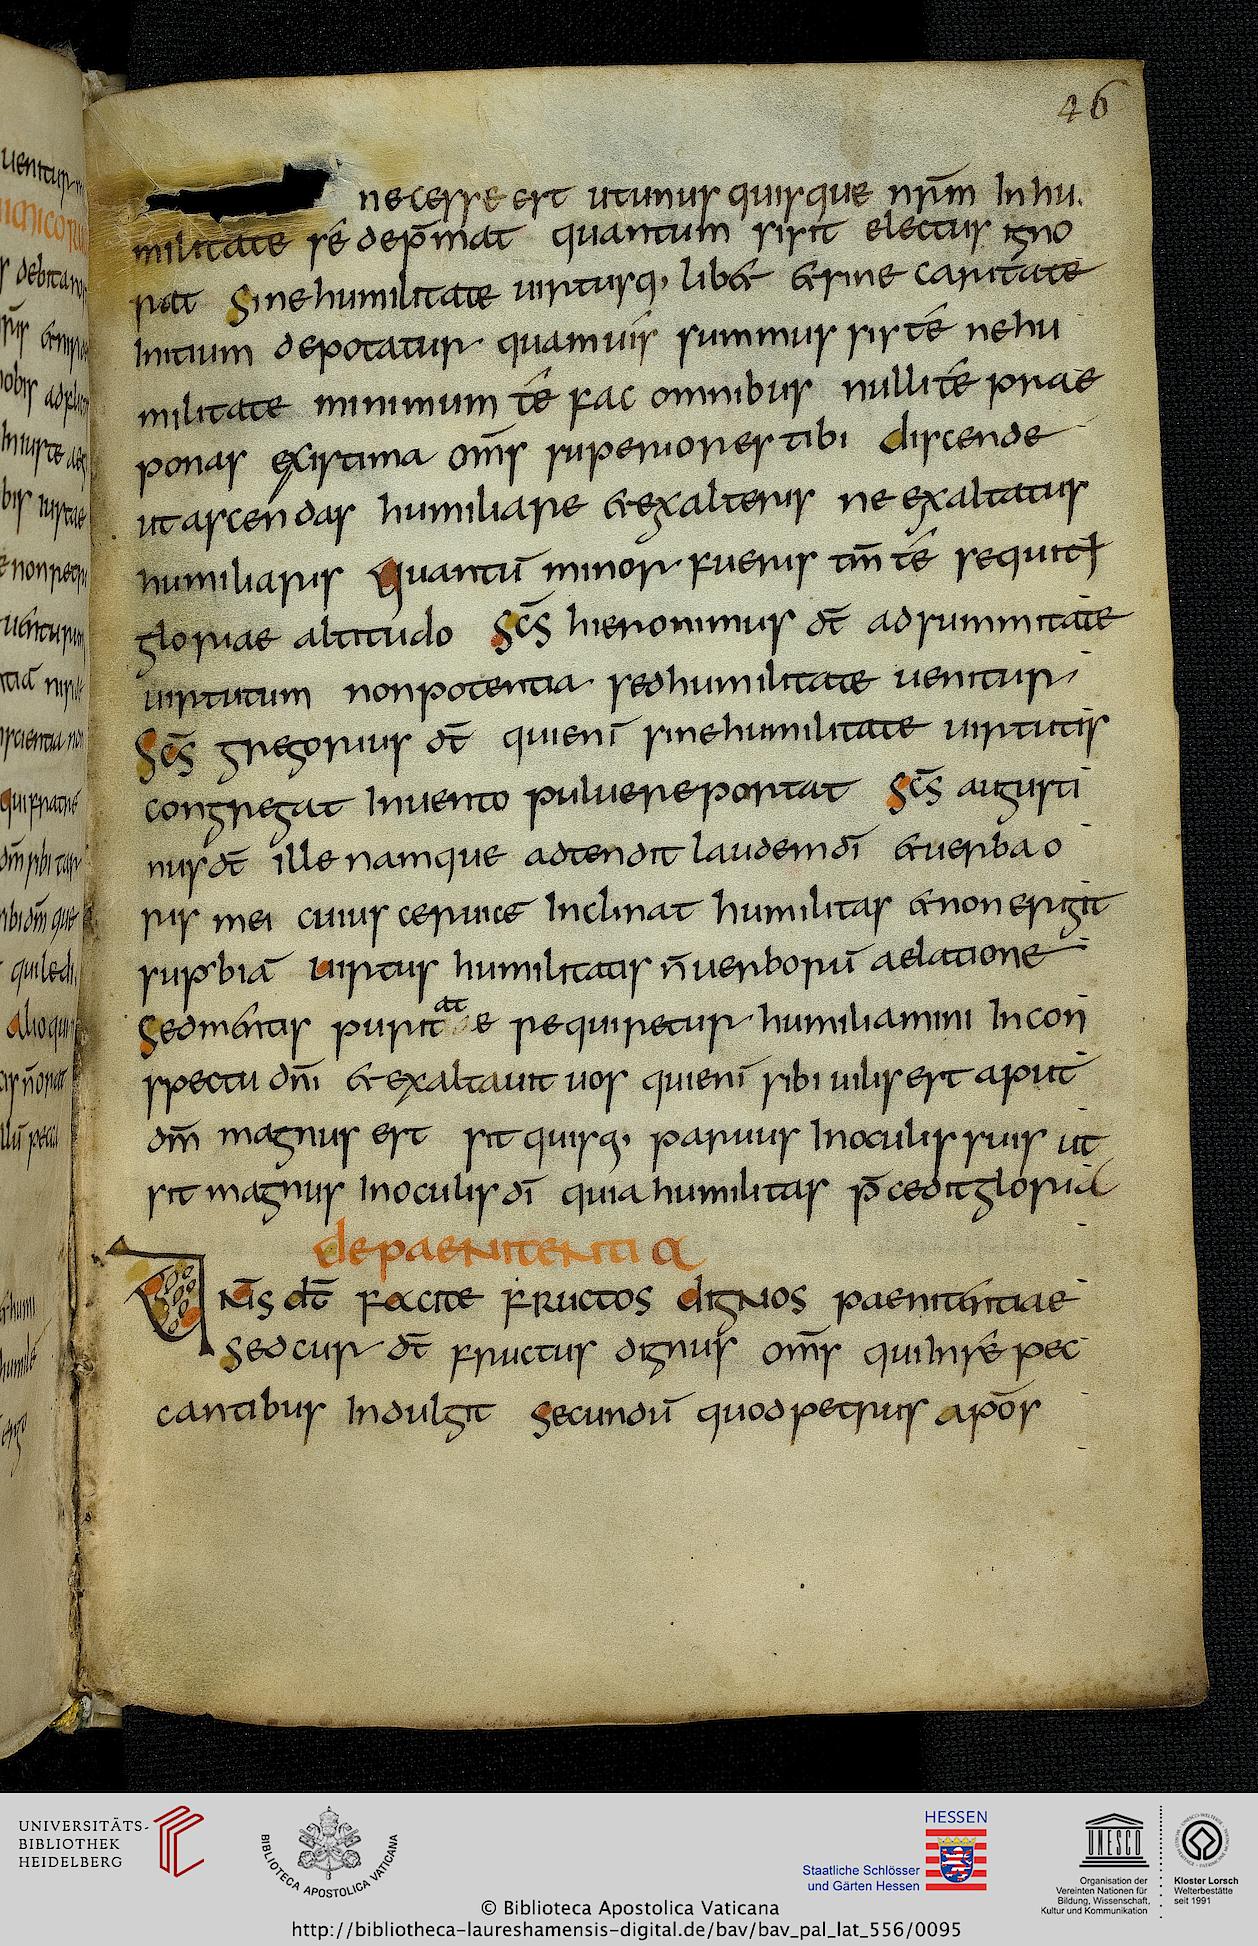 46
necesse est ut unusquisque nr̄m Inhu
militate sé dep̄mat quantum sit electus igno
rat Sine humilitate uirtusq; lib& &sine caritate
Initium depotatur quamuis summus sis té nehu
militate minimum té fac omnibus nulli té prae
ponas existima om̄s superiores tibi discende
ut ascendas humiliare &exalteris ne exaltatus
humiliaris Quantū minor fueris tm̄ té sequit
gloriae altitudo Sc̄s hieronimus dt̄ adsummitate
uirtutum nonpotentia sedhumilitate uenitur
Sc̄s gregorius dt̄ quienī sinehumilitate uirtutis
congregat Inuento puluereportat Sc̄s augusti
nus dt̄ ille namque adtendit laudemdī &uerba o
ris mei cuius ceruice Inclinat humilitas &non erigit
sup̄biā uirtus humilitatis n̄uerborū aelatione
Sedm&ntis puritate requiretur humiliamini Incon
spectu dn̄i &exaltauit uos quienī sibi uilis est aput
dm̄ magnus est sit quisq; paruus Inoculis suis ut
sit magnus Inoculis dī quia humilitas p̄cedit gloria
depaenitentia
Dn̄s dt̄ facite fructos dignos paenit&ntiae
Sedcur dt̄ fructus dignus om̄s qui Insé pec
cantibus Indulgit Secundū quodpetrus apōs
UNIVERSITÄTS-
BIBLIOTHEK
HEIDELBERG
BIBLIOTECA APOSTOLICA VATICANA
HESSEN
Staatliche Schlösser
und Gärten Hessen
UNESCO
Organisation der
Vereinten Nationen für
Bildung, Wissenschaft,
Kultur und Kommunikation
Kloster Lorsch
Welterbestätte
seit 1991
© Biblioteca Apostolica Vaticana
http://bibliotheca-laureshamensis-digital.de/bav/bav_pal_lat_556/0095